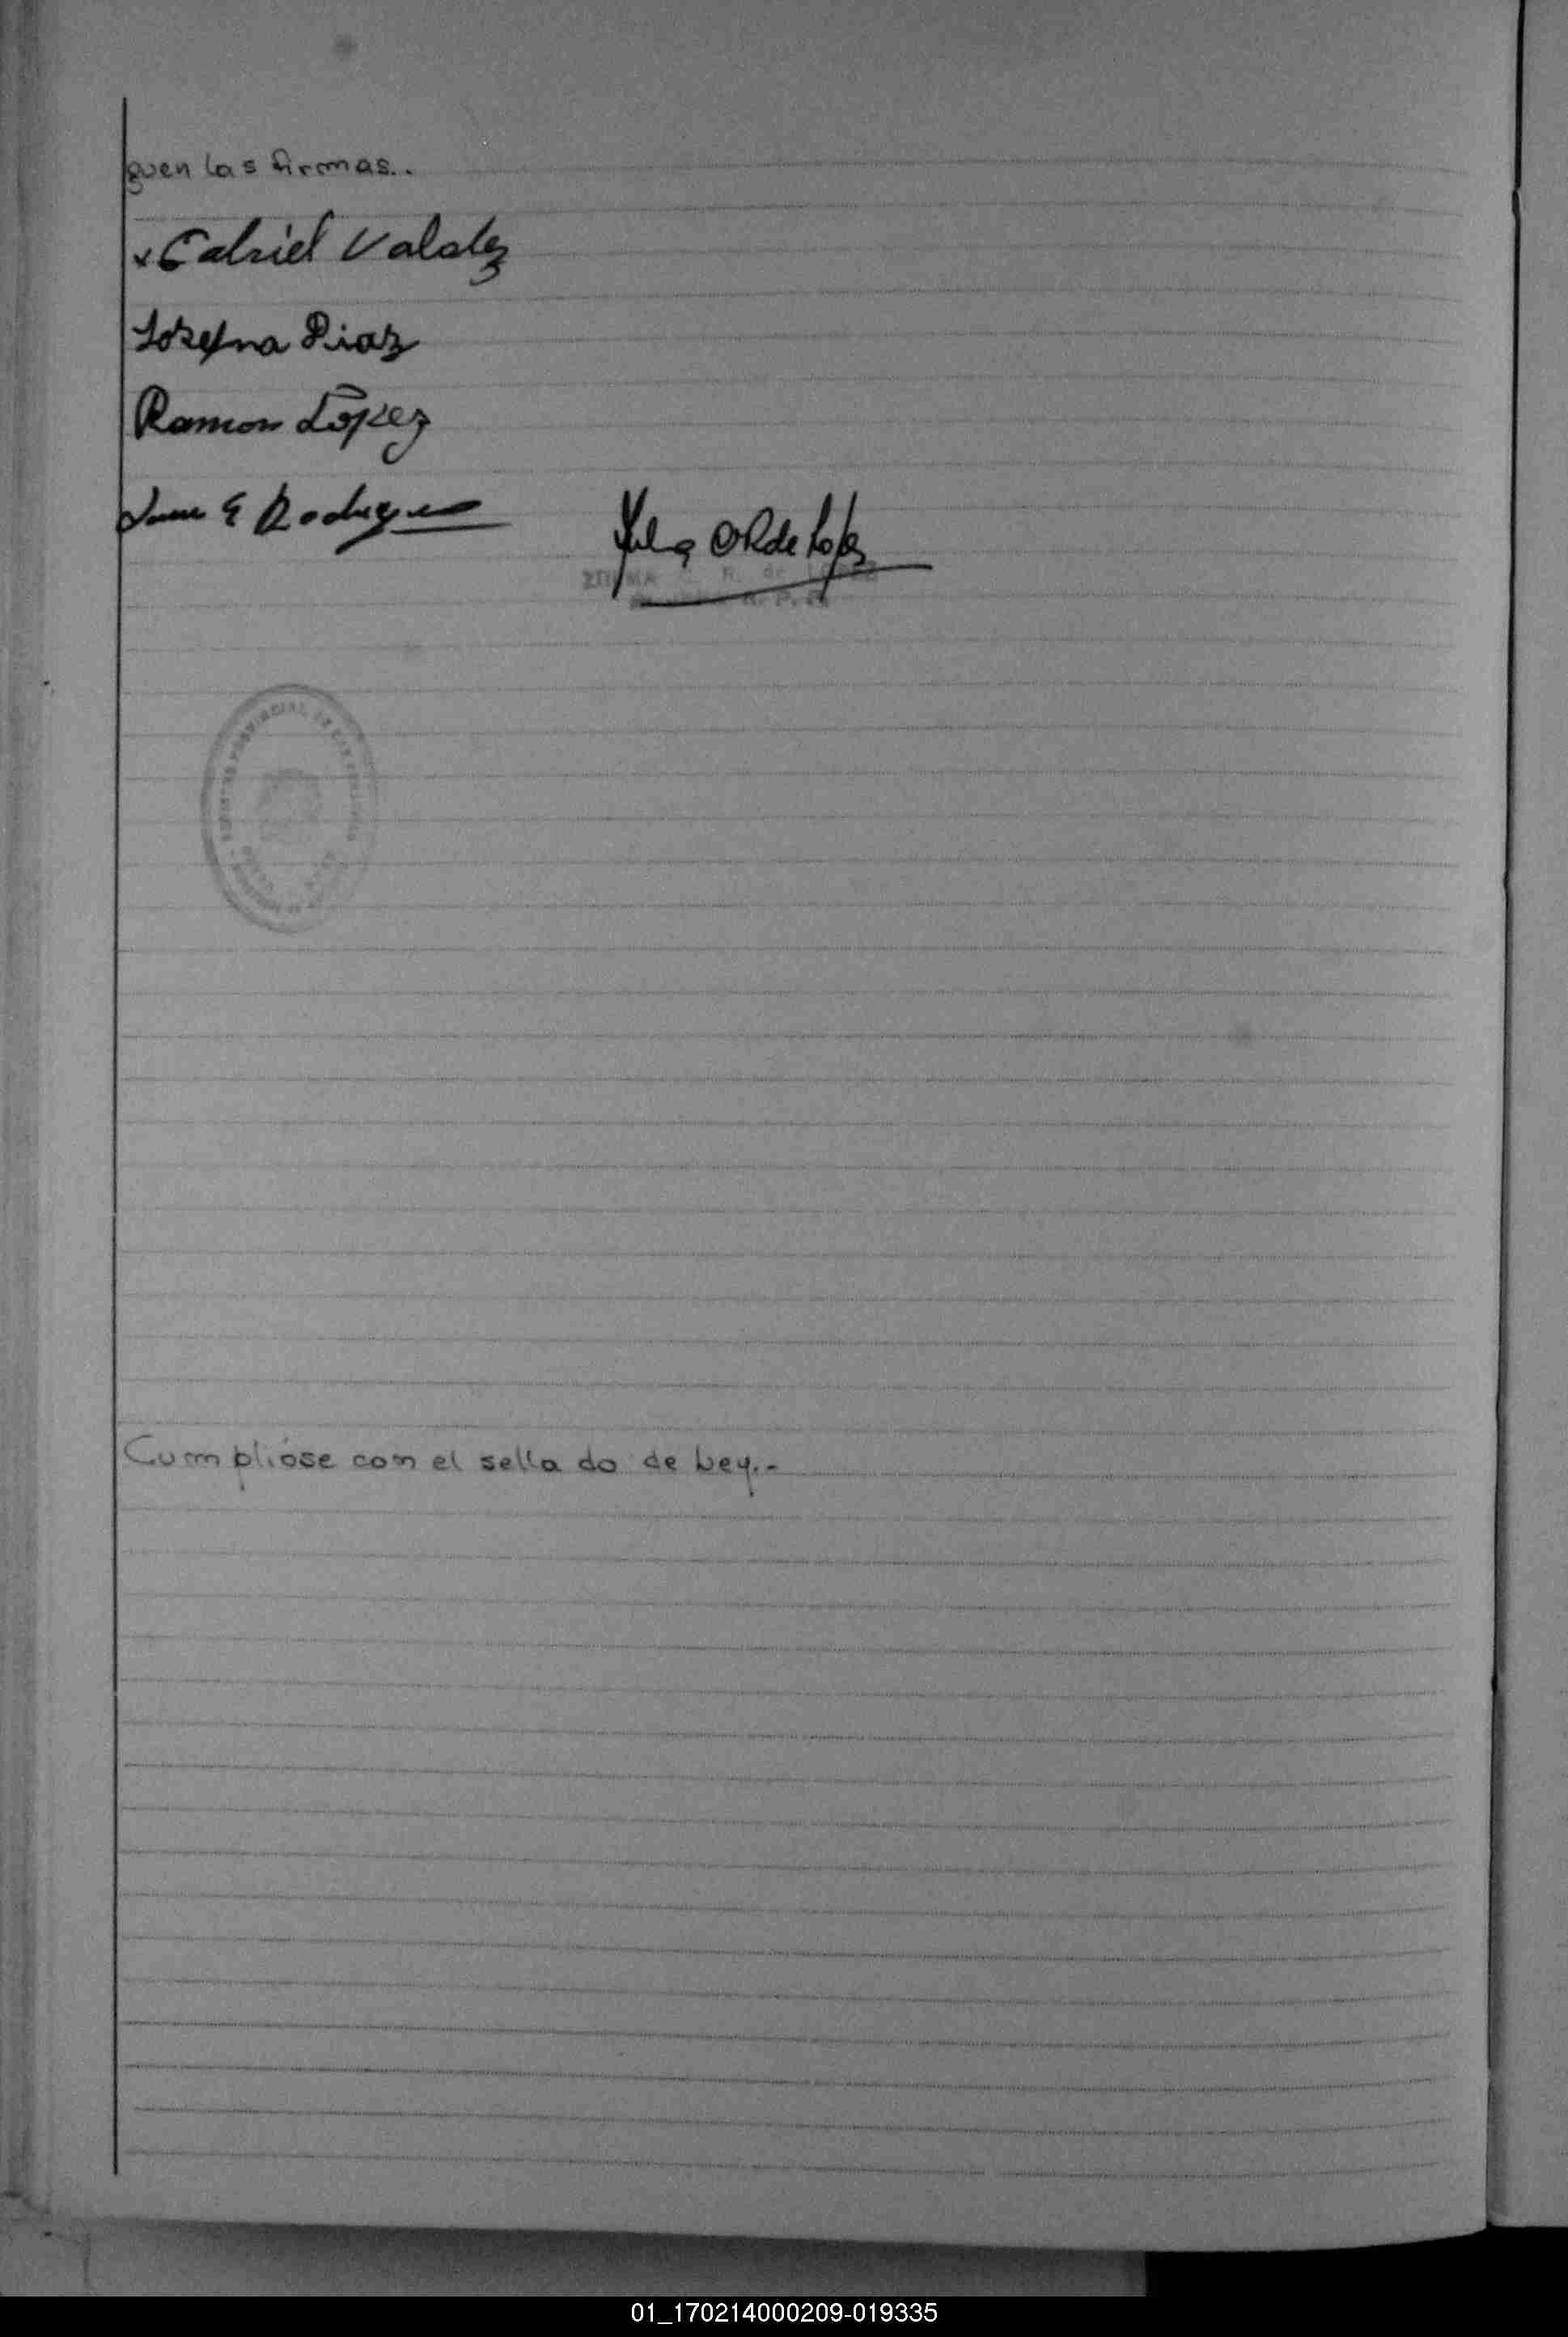 guen las firmas..
x Gabriel Valdez
Josefina Diaz
Ramon López
E Rodriguez
R de Lopez
R. de LOPEZ
Cumplióse con el sellado de Ley.-
01_170214000209-019335